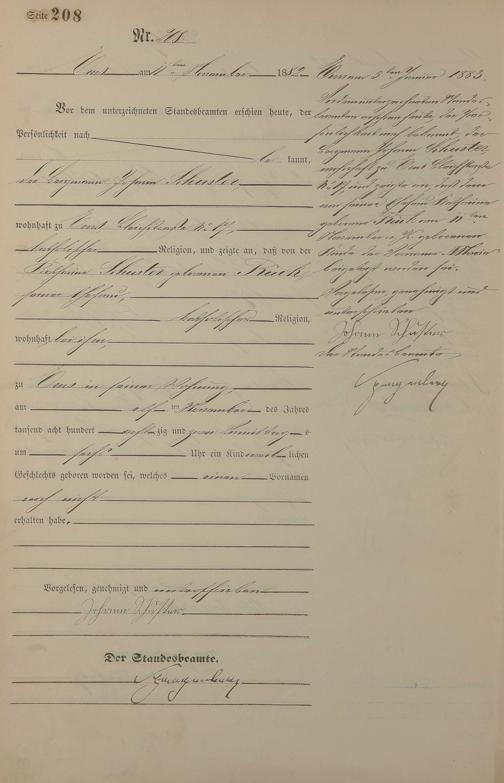 Seite 208
Nr. 208.
Ems am 11 ten November 1882
Vor dem unterzeichneten Standesbeamten erschien heute, der
Persönlichkeit nach
be kannt,
der Bergmann Johann Schuster
wohnhaft zu Ems
katholischer Religion, und zeigte an, daß von der
Katharina Schuster geborenen Rück,
seiner Ehefrau,
katholischer Religion,
wohnhaft bei ihm,
zu Ems in seiner Wohnung,
am elf ten November des Jahres
tausend acht hundert acht zig und zwei Vormittags
um sechs Uhr ein Kind weib lichen
Geschlechts geboren worden sei, welches einen Vornamen
noch nicht
erhalten habe.
Vorgelesen, genehmigt und unterschrieben
Johann Schuster
Der Standesbeamte.
Spangenberg
Ems am 5 ten Januar 1883.
Vor dem unterzeichneten Standes-
beamten erschien heute, der Per-
sönlichkeit nach bekannt, der
Bergmann Johann Schuster,
wohnhaft zu Ems
und zeigte an, daß dem
von seiner Ehefrau Katharina
geborene Rück am 11 ten
November geborenen
Kinde der Vorname Maria
beigelegt worden sei.
Vorgelesen, genehmigt und
unterschrieben
Johann Schuster
Der Standesbeamte
Spangenberg